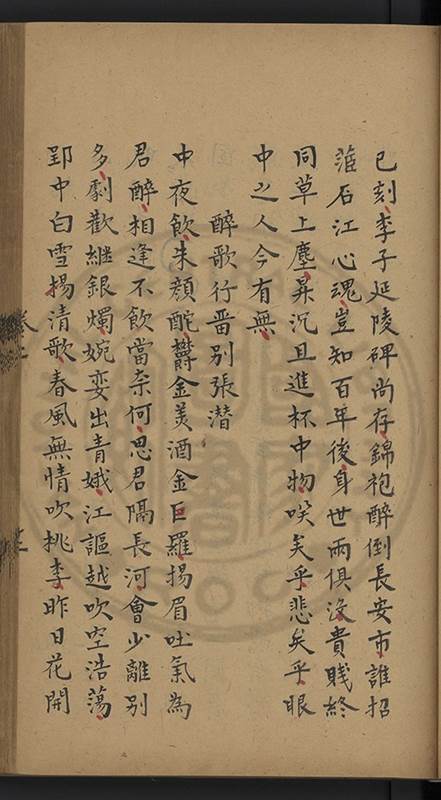 已刻李子延陵碑尚存錦袍醉倒長安市誰招
落石江心魂豈知百年後身世兩俱沒貴賤終
同草上塵昇沉且進杯中物嘆矣乎悲矣乎眼
中之人今有無
醉歌行畱別張潛
中夜飲朱顏酡欝金美酒金叵羅揚眉吐氣為
君醉相逢不飲當奈何思君隔長河會少離別
多劇歡継銀燭婉孌出青娥江謳越吹空浩蕩
郢中白雪揚清歌春風無情吹桃李昨日花開